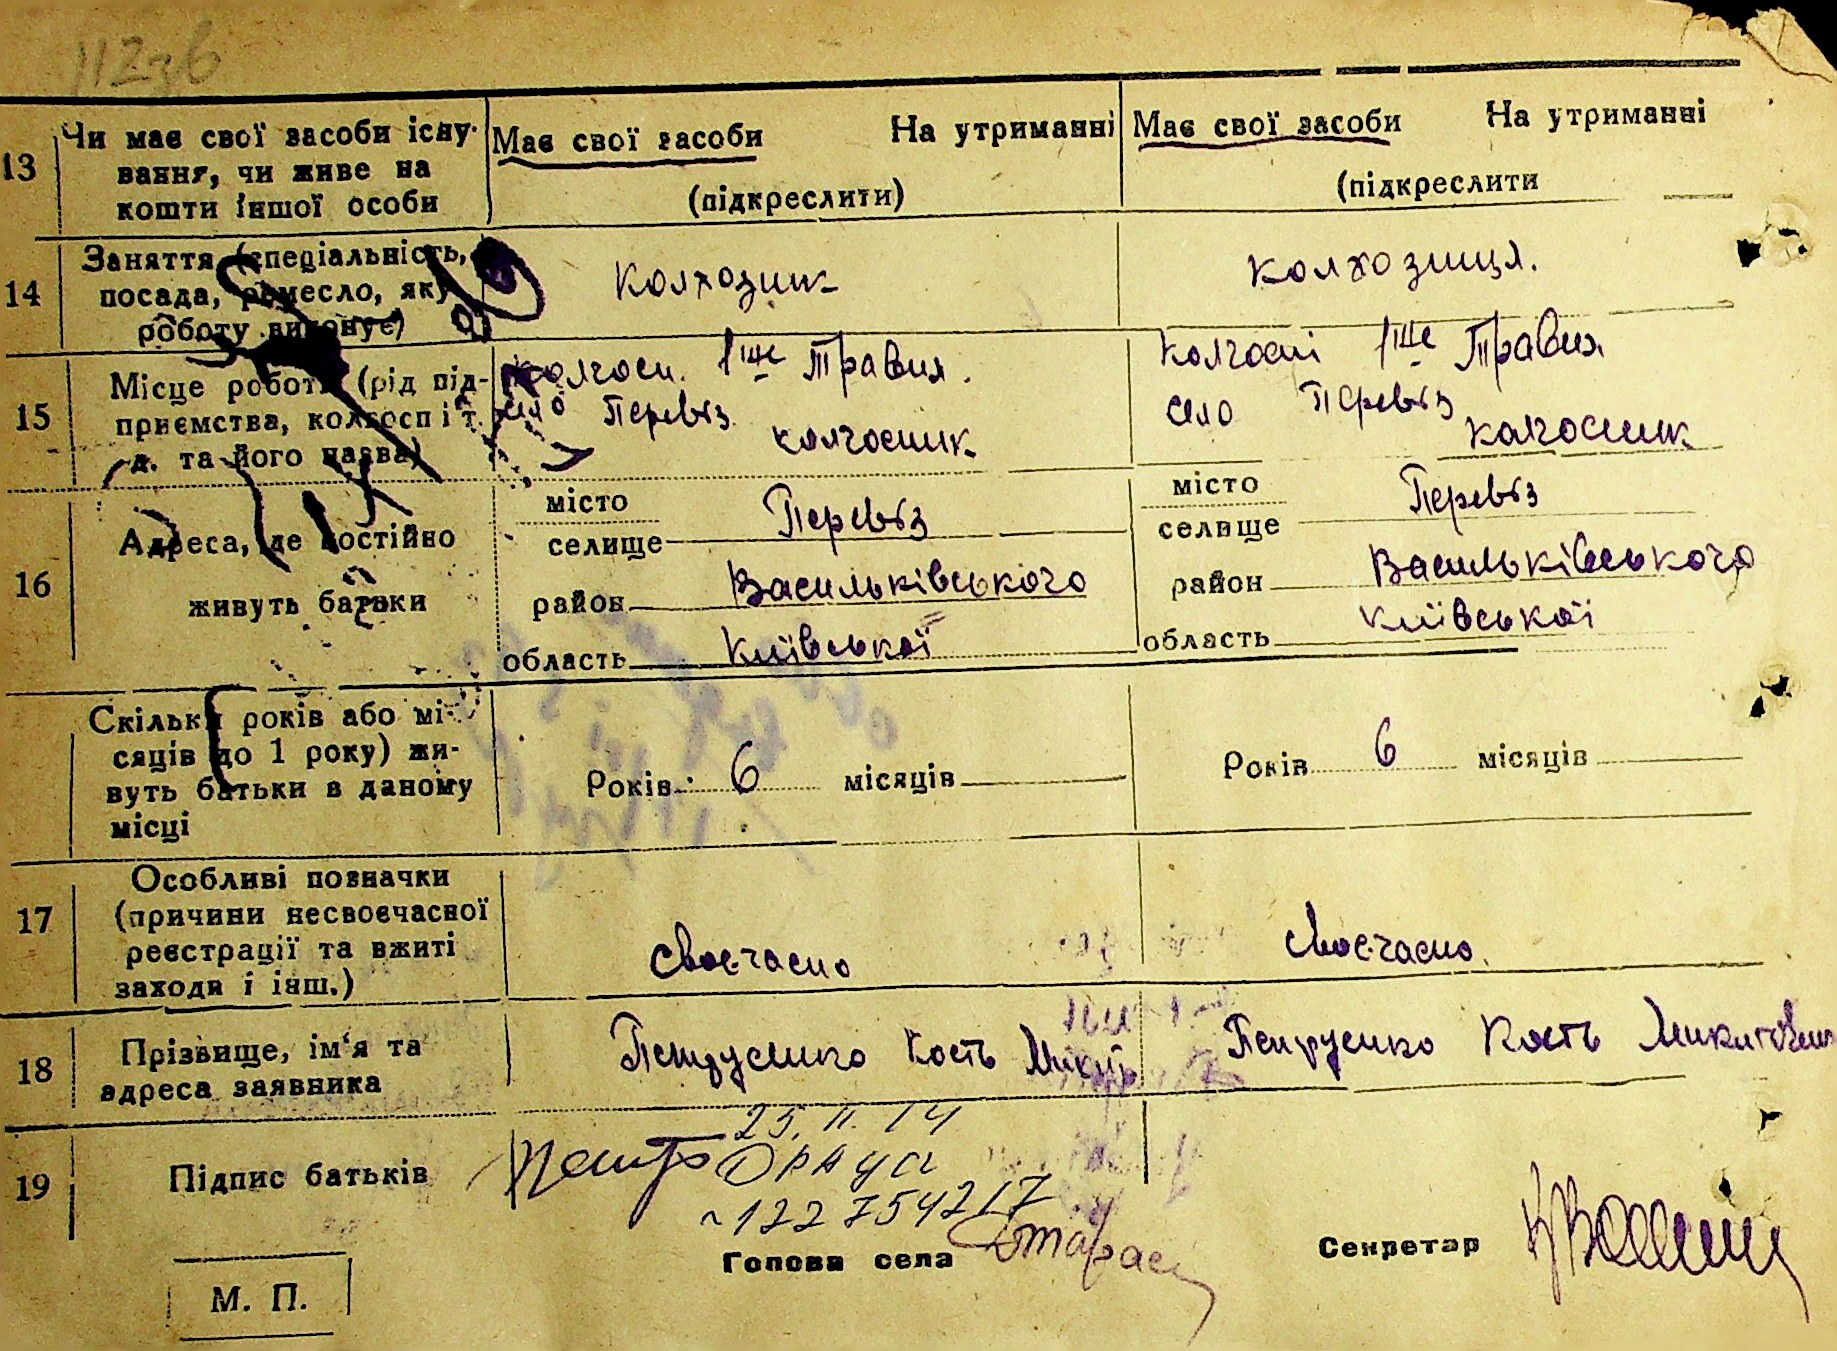 112зв
13
Чи має свої засоби існу-
вання, чи живе на
кошти іншої особи
Має свої засоби На утриманні
(підкреслити)
Має свої засоби На утриманні
(підкреслити
14
Заняття (спеціальність,
посада, ремесло, яку
роботу виконує)
Колхозник
Колхозниця.
15
Місце роботи (рід під-
приємства, колгосп і т.
д. та його назва)
колгосп. 1ше Травня.
село Перевіз
колгоспник
колгосп 1ше Травня
село Перевіз
колгоспник
16
Адреса, де постійно
живуть батьки
місто
селище Перевіз
район Васильківського
область Київської
місто
селище Перевіз
район Васильківського
область Київської
Скільки років або мі-
сяців (до 1 року) жи-
вуть батьки в даному
місці
Років 6 місяців
Років 6 місяців
17
Особливі позначки
(причини несвоєчасної
реєстрації та вжиті
заходи і інш.)
своєчасно
своєчасно.
18
Прізвище, ім'я та
адреса заявника
Петрусенко Кость Микит
Петрусенко Кость Микитович
19
Підпис батьків
25. 11. 14
122754217
Голова села
Секретар
М. П.